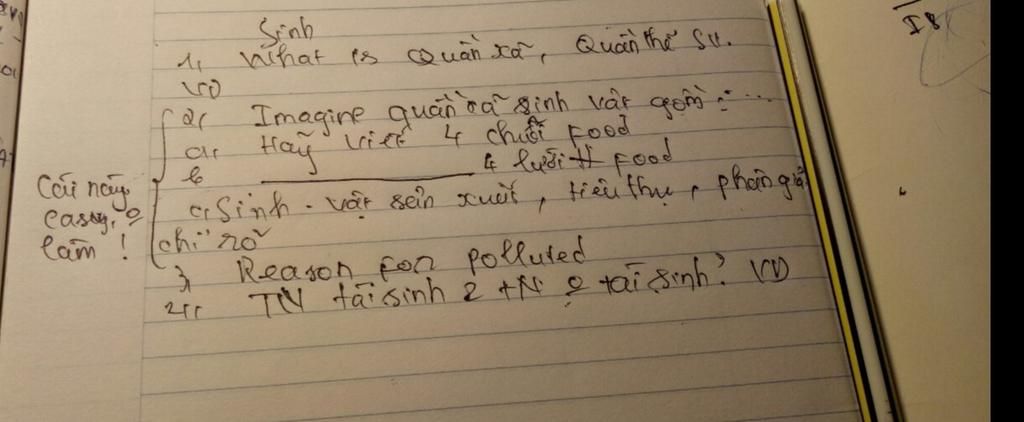 Sinh
1, What is Quần xã, Quần thể SV.
VD
2, Imagine quần xã sinh vật gồm: ...
a, Hãy viết 4 chuỗi Food
b ________ 4 lưới Food
c, Sinh - vật sản xuất, tiêu thụ, phân giải
chỉ rõ
Cái này
easy,
lắm !
3, Reason for polluted
4, TN tái sinh 2 TN 0 tái sinh? VD
I 8